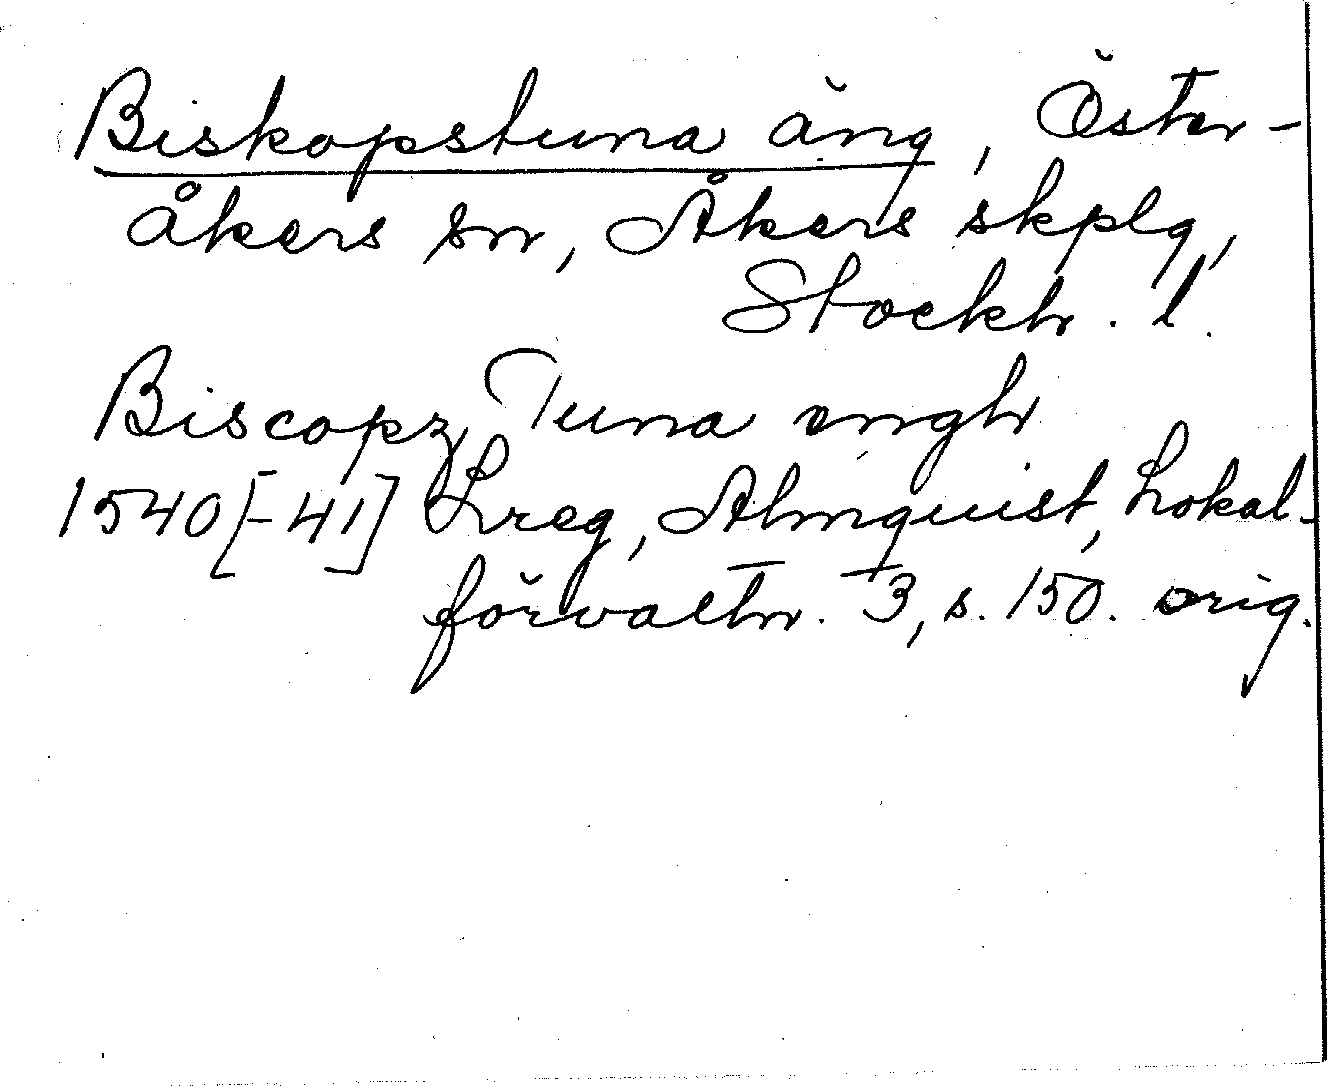 Biskopstuna äng, Öster-
åkers sn, Åkers skplg,
Stockh. l.
Biscopz Tuna engh
1540[-41] Lreg, Almquist, Lokal-
förvaltn. 3, s. 150. orig.